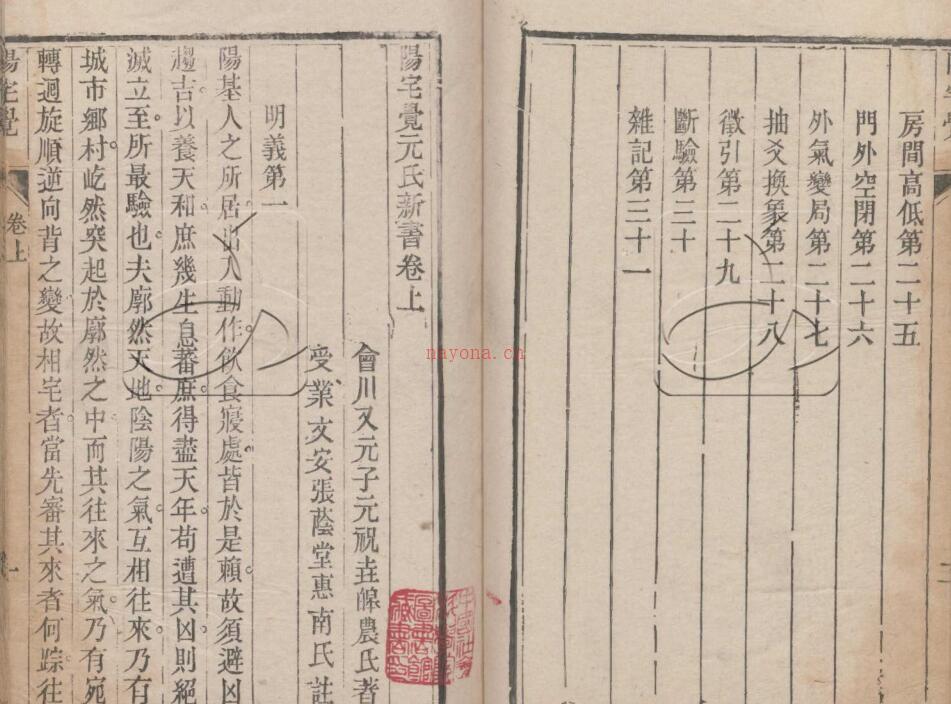 房間高低第二十五
門外空閉第二十六
外氣變局第二十七
抽爻換象第二十八
徵引第二十九
斷驗第三十
雜記第三十一
陽宅覺元氏新書卷上
會川又元子元祝垚皥農氏著
受業文安張蔭堂惠南氏註
明義第一
陽基人之所居出入動作飲食寢處皆於是賴故須避凶
趨吉以養天和庶幾生息蕃庶得盡天年苟遭其凶則絕
滅立至所最驗也夫廓然天地陰陽之氣互相往來乃有
城市鄉村屹然突起於廓然之中而其往來之氣乃有宛
轉迴旋順逆向背之變故相宅者當先審其來者何踪往
陽宅覺
卷上
一
nayona.cn